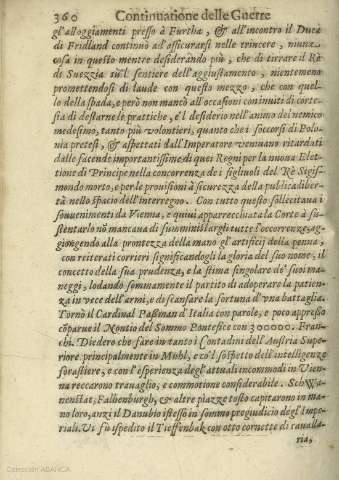 360 Continuatione delle Guerre
gl'alloggiamenti presso à Furtha, & all'incontro il Duca
di Fridland continuò ad assicurarsi nelle trincere, niuna
cosa in questo mentre desiderando più, che di tirrare il Rè
di Suezzia sù'l sentiere dell'aggiustamento, nientemeno
promettendosi di laude con questo mezzo, che con quel-
lo della spada, e però non mancò all'occasioni con inuiti di corte-
sia di destarne le prattiche, e'l desiderio nell'animo del nemico
medesimo, tanto più volontieri, quanto che i soccorsi di Polo-
nia pretesi, & aspettati dall'Imperatore veniuano ritardati
dalle facende importantissime di quei Regni per la nuoua Elet-
tione di Principe nella concorrenza de i figliuoli del Rè Sigis-
mondo morto, e per le prouisioni à sicurezza della publica liber-
tà nello spacio dell'interregno. Con tutto questo sollecitaua i
souuenimenti da Vienna, e quiui apparecchiata la Corte à su-
stentarlo nō mancaua di summinístrargli tutte l'occorrenze, ag-
giongendo alla prontezza della mano gl'artificij della penna,
con reiterati corrieri significandogli la gloria del suo nome, il
concetto della sua prudenza, e la stima singolare de' suoi ma-
neggi, lodando sommamente il partito di adoperare la patien-
za in vece dell'armi, e di scansare la fortuna d'vna battaglia.
Tornò il Cardinal Pasman d'Italia con parole, e poco appresso
cōparue il Nontio del Sommo Pontefice con 300000. Fran-
chi. Diedero che fare in tanto i Contadini dell'Austria Supe-
riore principalmente in Muhl, e co'l sospetto dell'intelligenze
forastiere, e con l'esperienza degl'attuali incommodi in Vien-
na reccarono trauaglio, e commotione considerabile. SchWa-
nenstat, Falhenburgh, & altre piazze tosto capitarono in ma-
no loro, anzi il Danubio istesso in sommo pregiudicio degl'Impe-
riali. Vi fù ispedito il Tieffenbak con otto cornette di caualla-
ria,
Colección ABANCA